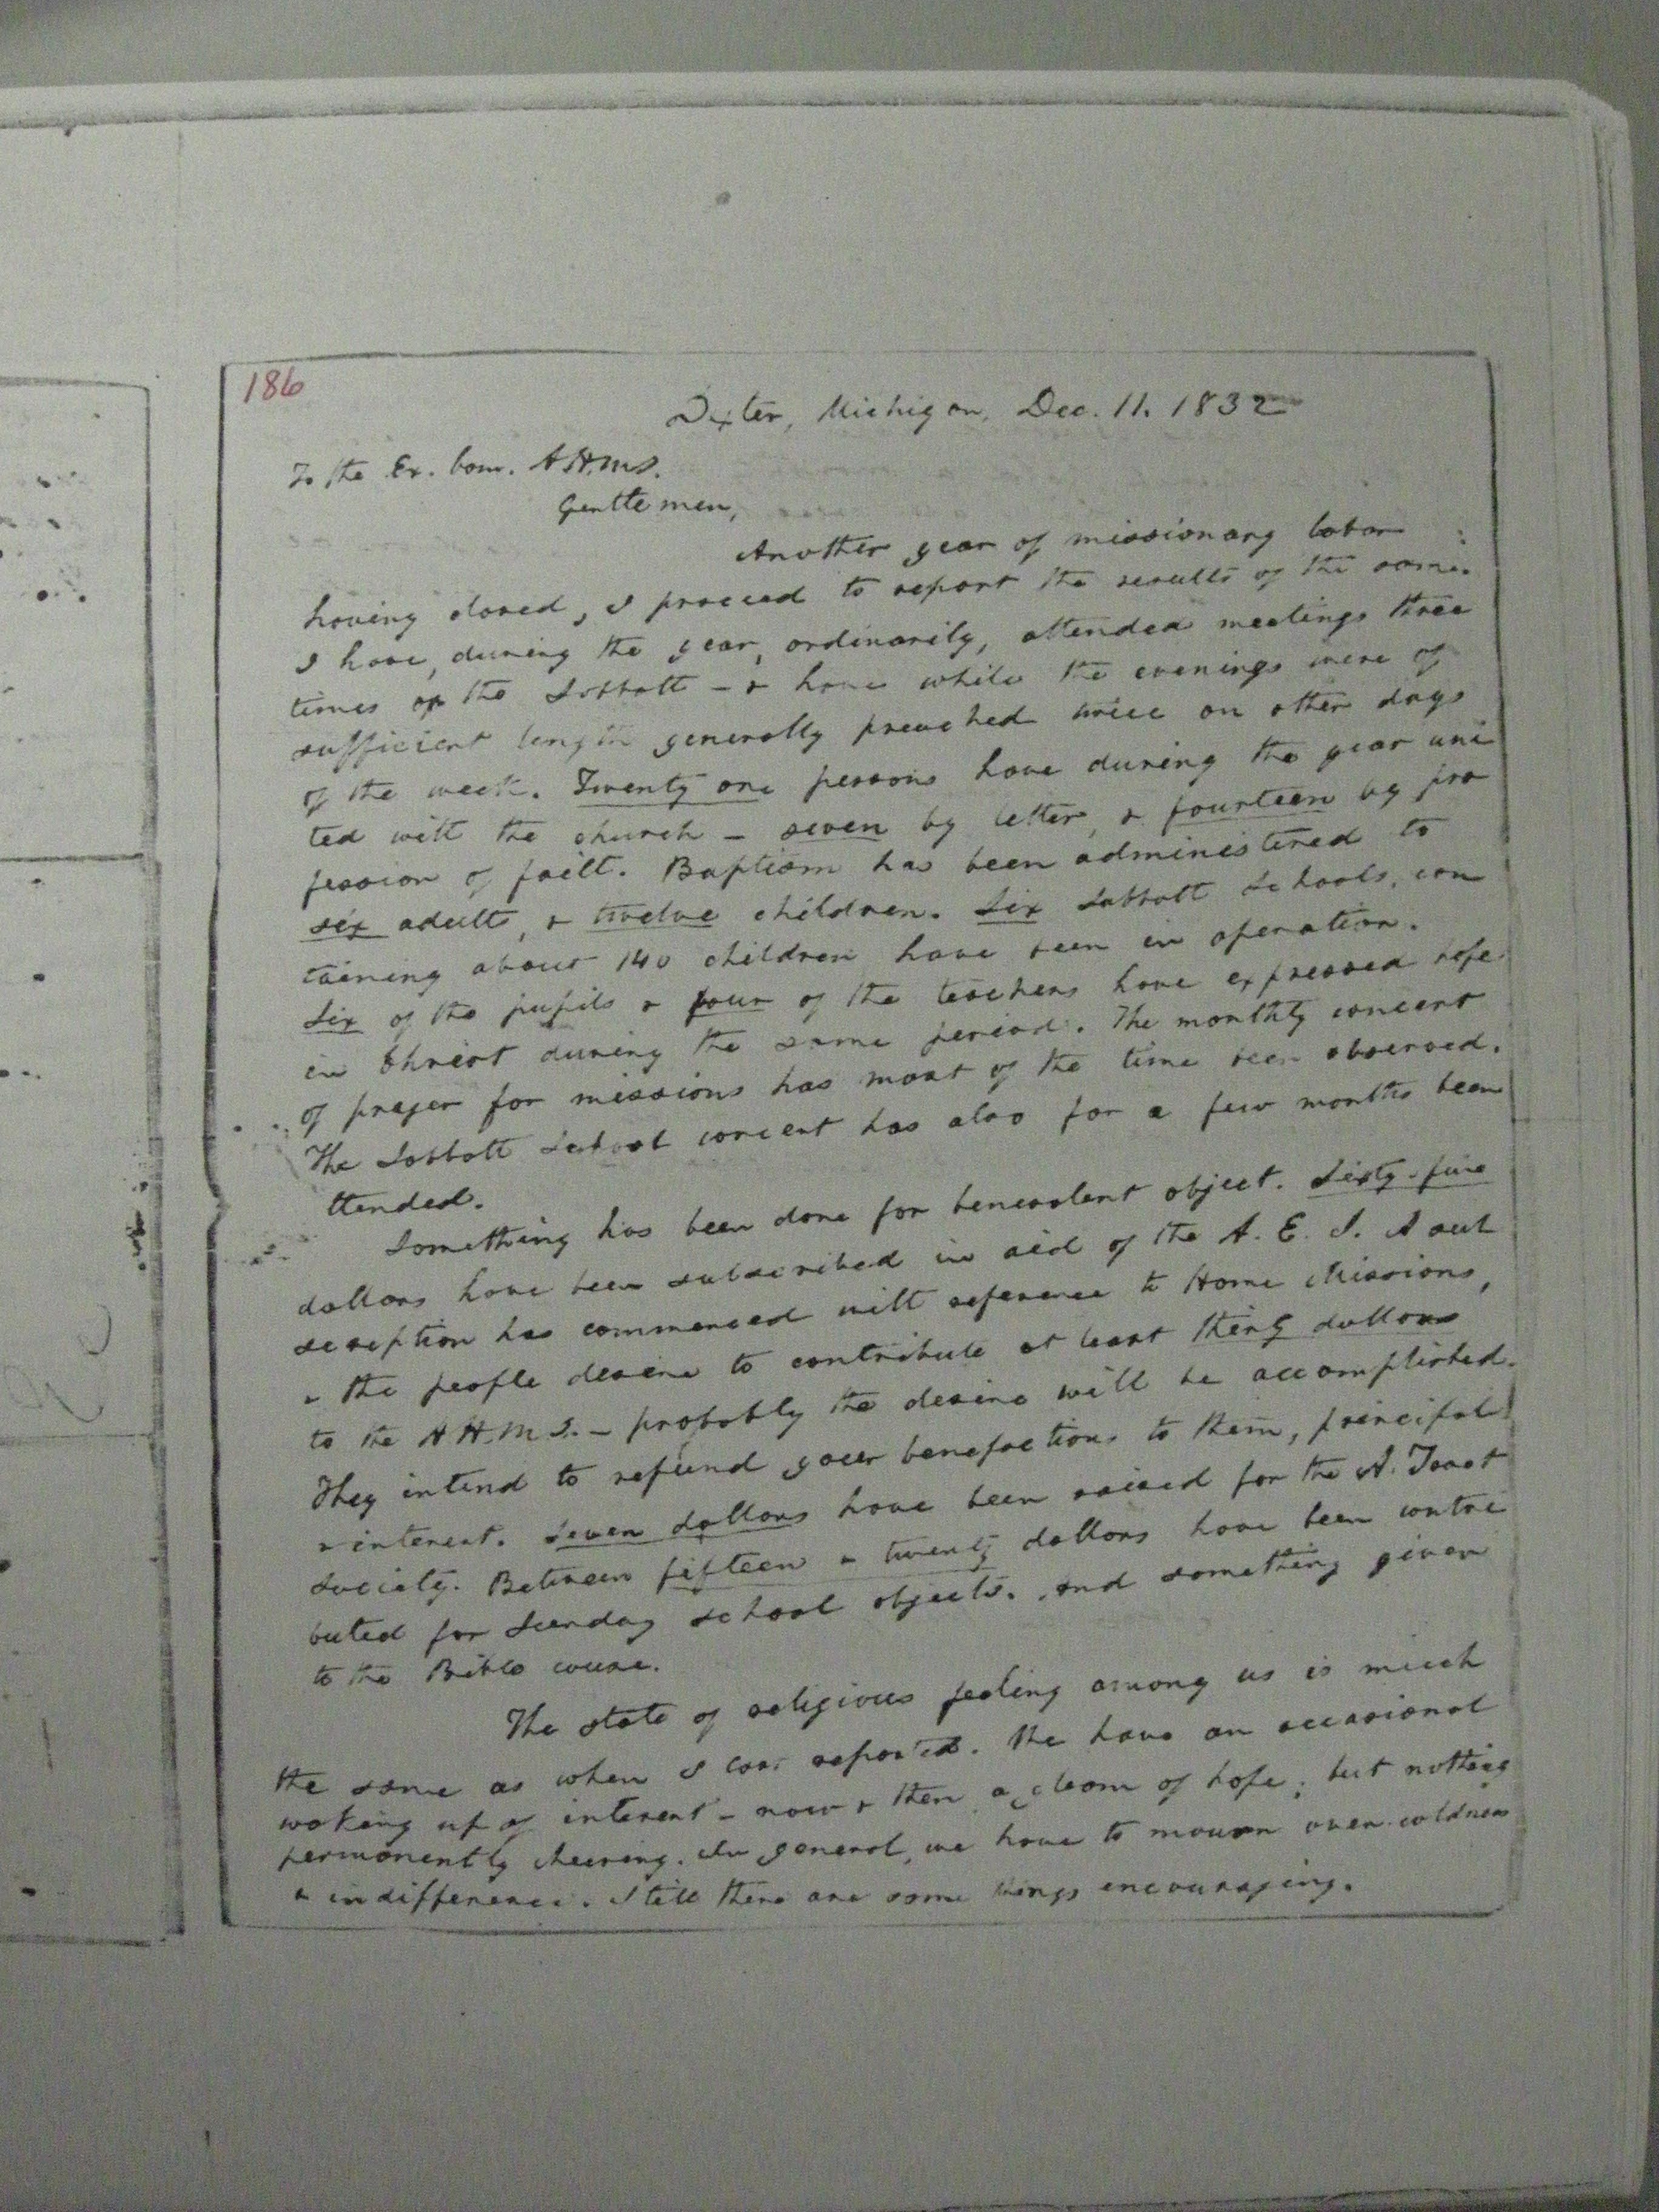 186
Dexter, Michigan, Dec. 11. 1832
To the Ex. Com. A.H.M.S.
Gentlemen,
Another year of missionary labor
having closed, I proceed to report the results of the same.
I have, during the year, ordinarily, attended meetings three
times on the Sabbath - & have while the evenings were of
sufficient length generally preached twice on other days
of the week. Twenty one persons have during the year uni
ted with the church - seven by letter, & fourteen by pro
fession of faith. Baptism has been administered to
six adults, & twelve children. Six Sabbath Schools, con
taining about 140 children have been in operation.
Six of the pupils & four of the teachers have expressed hope
in Christ during the same period. The monthly concert
of prayer for missions has most of the time been observed.
The Sabbath School concert has also for a few months been
ttended.
Something has been done for benevolent object. Sixty-five
dollars have been subscribed in aid of the A. E. S. A sub
scription has commenced with reference to Home Missions,
& the people desire to contribute at least thirty dollars
to the A H.M S. - probably the desire will be accomplished.
They intend to refund your benefactions to them, principal
& interest. Seven dollars have been raised for the A. Tract
Society. Between fifteen & twenty dollars have been contri
buted for Sunday school objects. And something given
to the Bible cause.
The state of religious feeling among us is much
the same as when I last reported. We have an occasional
waking up of interest - now & then a gleam of hope; but nothing
permanently cheering. In general, we have to mourn over coldness
& indifference. Still there are some things encouraging.